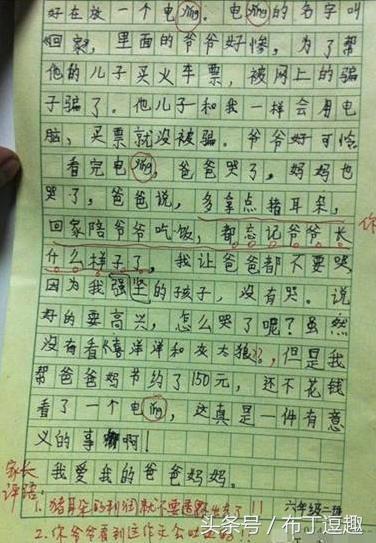 好在放一个电影。电影的名字叫
回家，里面的爷爷好惨，为了帮
他的儿子买火车票，被网上的骗
子骗了。他儿子和我一样会用电
脑，买票就没被骗。爷爷好可怜
看完电影，爸爸哭了，妈妈也
哭了，爸爸说，多拿点猪耳朵，
回家陪爷爷吃饭，都忘记爷爷长
什么样子了，我让爸爸都不要哭
因为我坚强的孩子，没有哭。说
好的要高兴，怎么哭了呢？虽然
没有看喜洋洋和灰太狼，但是我
帮爸爸妈节约了150元，还不花钱
看了一个电影，这真是一件有意
义的事啊！
我爱我的爸爸妈妈。
家长
评语：
1.猪耳朵的利润就不要
六年级二班
2.你爷爷看到这作文会
头条号 / 布丁逗趣